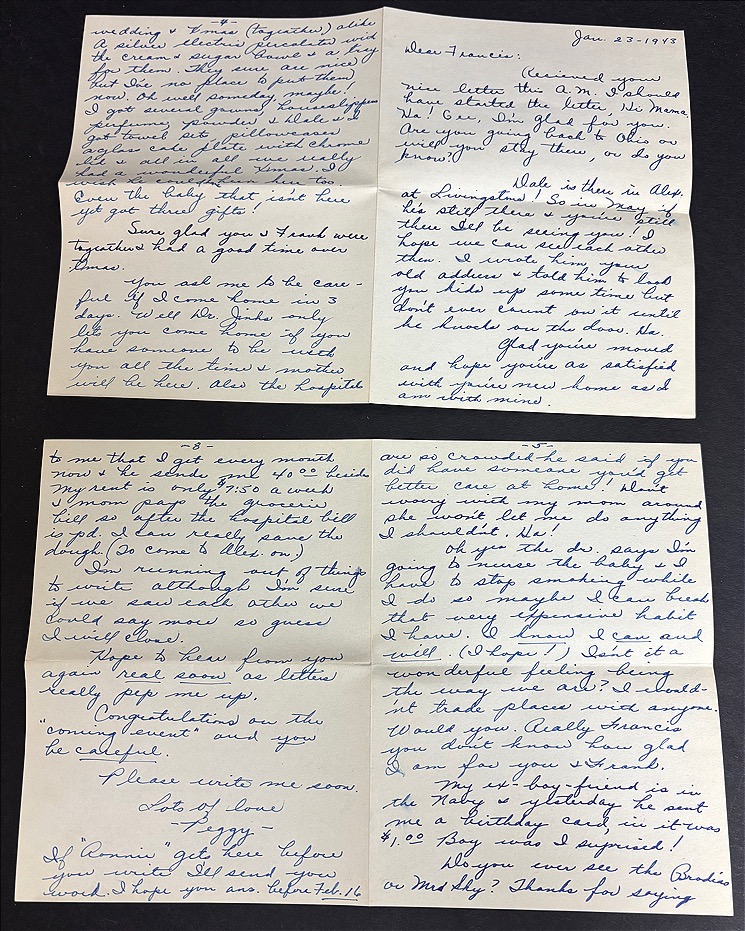 Jan. 23-1943
Dear Francis:
Recieved your
nice letter this A.M. I should
have started the letter, Hi Mama.
Ha! Gee, I'm glad for you.
Are you going back to Ohio or
will you stay there, or do you
know?
Dale is there in Alex.
at Livingston! So in May if
he's still there & you're still
there I'll be seeing you! I
hope we can see each other
then. I wrote him your
old address & told him to look
you kids up some time but
don't ever count on it until
he knocks on the door. Ha.
Glad you're moved
and hope you're as satisfied
with you're new home as I
am with mine.
-4-
wedding & Xmas (togeather) alike
A silver electric percolater with
the cream & sugar bowls & a tray
for them. They sure are nice
but I've no place to put them
now. Oh well someday, maybe!
I got several gowns, houseslippers
perfume & powder & Dale & I
got towel set, pillowcases
a glass cake plate with chrome
lid & all in all we really
had a wonderful Xmas. I
wish been here too.
Even the baby that isn't here
yet got three gifts!
Sure glad you & Frank were
togeather & had a good time over
Xmas.
You ask me to be care-
ful if I come home in 3
days. Well Dr. Jinks only
lets you come home if you
have someone to be with
you all the time & mother
will be here. Also the hospitals
-5-
are so crowded he said if you
did have someone you'd get
better care at home! Don't
worry with my mom around
she won't let me do anything
I shouldn't. Ha!
Oh yes the dr. says I'm
going to nurse the baby & I
have to stop smoking while
I do so maybe I can break
that very expensive habit
I have. I know I can and
will. (I hope!) Isn't it a
wonderful feeling being
the way we are? I would-
'nt trade places with anyone.
Would you. Really Francis
you don't know how glad
I am for you & Frank.
My ex-boy-friend is in
the Navy & yesterday he sent
me a birthday card, in it was
$1.00 Boy was I suprised!
Do you ever see the
or Mrs Sky? Thanks for saying
-8-
to me that I get every month
now & he sends me 40 00 besides
My rent is only $7:50 a week
& mom pays the groceries
bill so after the hospital bill
is pd. I can really save the
dough. (To come to Alex. on.)
I'm running out of things
to write although I'm sure
if we saw each other we
could say more so guess
I will close.
Hope to hear from you
again real soon as letters
really pep me up.
Congratulations on the
"coming event" and you
be careful.
Please write me soon.
Lots of love
-Peggy-
If "Ronnie" gets here before
you write I'll send you
word. I hope you ans. before Feb. 16